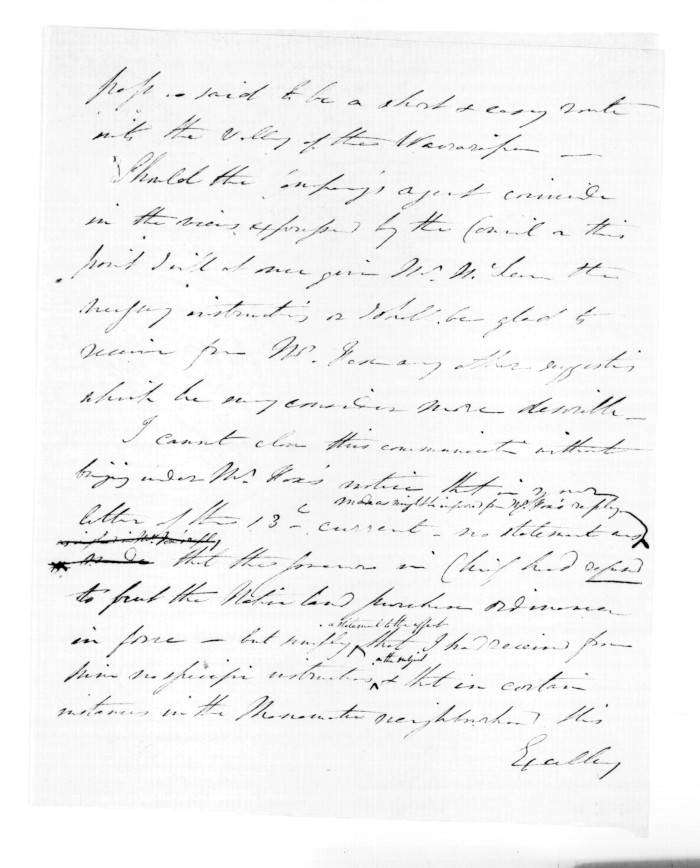 pass is said to be a short & easy route
into the Valley of the Wairarapa —
Should the Company's agent coincide
in the views expressed by the Council on this
point I will at once give Mr. McLean the
necessary instructions or I shall be glad to
receive from Mr. Fox any other suggestions
which he may consider more desirable —
I cannot close this communication without
bringing under Mr. Fox's notice that in my
made as might be inferred from Mr. Fox's reply
letter of the 13th current - no statement was
made that the Governor in Chief had refused
to put the Native land purchase ordinance
a statement to the effect
in force — but simply that I had received from
on the subject
him no specific instructions & that in certain
instances in the Manawatu neighbourhood this
Excellency